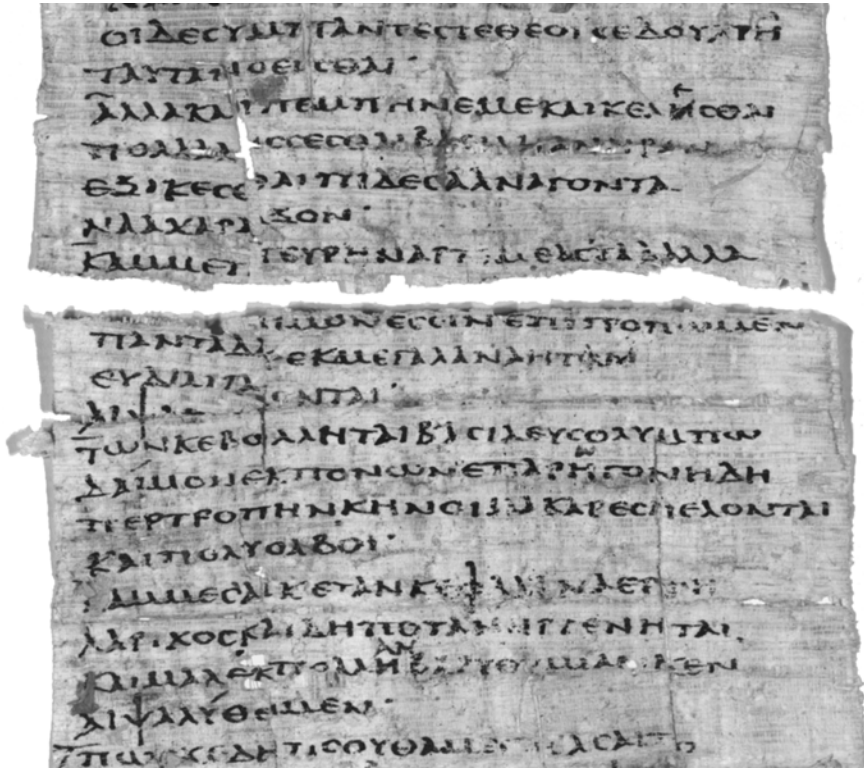 ΟΙΔΕΣΥΜΠΑΝΤΕΣΤΕΘΕΟΙΣΕΔΟΥΧΡΗ
ΤΑΥΤΑΝΟΕΙΣΘΑΙ·
ΑΛΛΑΚΑΙΠΕΜΠΗΝΕΜΕΚΑΙΚΕΛΗΣΘΑΙ
ΠΟΛΛΑΛΙΣΣΕΣΘΑΙΒΑΣΙΛΗΑΝΗΡΑΝ
ΕΞΙΚΕΣΘΑΙΤΥΙΔΕΣΑΑΝΑΓΟΝΤΑ
ΝΑΑΧΑΡΑΞΟΝ·
ΚΑΜΜΕΠΕΥΡΗΝΑΡΤΕΜΕΑΣΤΑΔΑΛΛΑ
ΠΑΝΤΑΔΑΙΜΟΝΕΣΣΙΝΕΠΙΤΡΟΠΩΜΕΝ
ΕΥΔΙΑΙΓΑΡΕΚΜΕΓΑΛΑΝΑΗΤΑΝ
ΑΙΨΑΠΕΛΟΝΤΑΙ·
ΤΩΝΚΕΒΟΛΛΗΤΑΙΒΑΣΙΛΕΥΣΟΛΥΜΠΩ
ΔΑΙΜΟΝΕΚΠΟΝΩΝΕΠΑΡΗΓΟΝΗΔΗ
ΠΕΡΤΡΟΠΗΝΚΗΝΟΙΜΑΚΑΡΕΣΠΕΛΟΝΤΑΙ
ΚΑΙΠΟΛΥΟΛΒΟΙ·
ΚΑΜΜΕΣΑΙΚΕΤΑΝΚΕΦΑΛΑΝΑΕΡΡΗ
ΛΑΡΙΧΟΣΚΑΙΔΗΠΟΤΑΝΗΡΓΕΝΗΤΑΙ
ΚΑΙΜΑΛΕΚΠΟΛΛΑΝΒΑΡΥΘΥΜΙΑΝΚΕΝ
ΑΙΨΑΛΥΘΕΙΜΕΝ·
ΠΩΣΚΕΔΗΤΙΣΟΥΘΑΜΕΩΣΑΣΑΙΤΟ